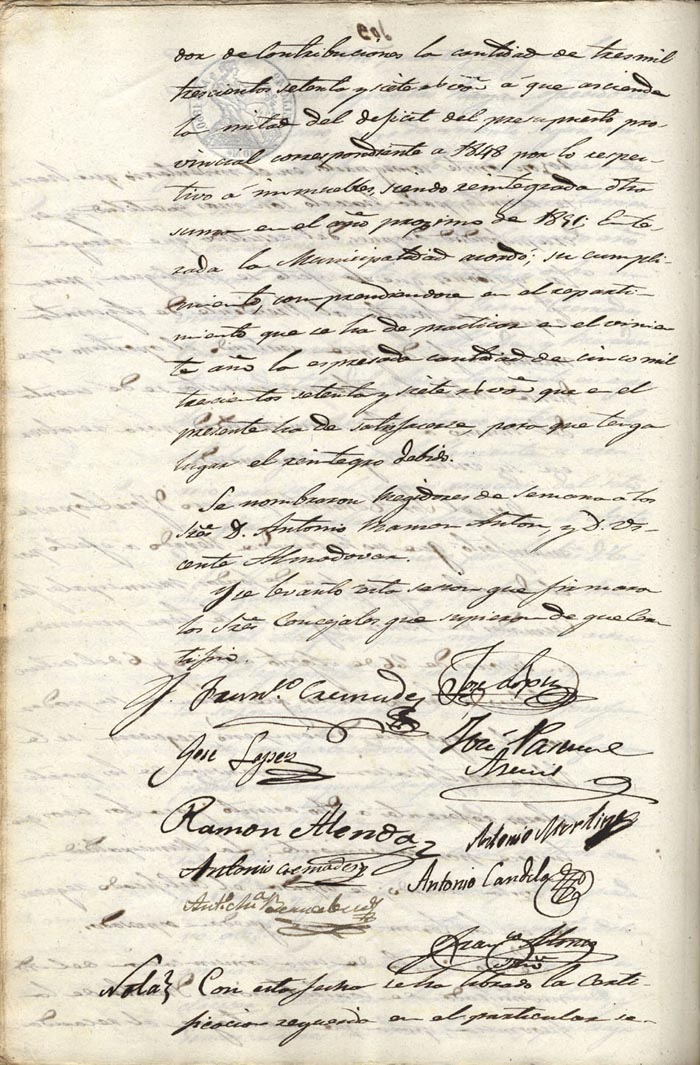 dor de Contribuciones la cantidad de tresmil
trescientos setenta y siete rs von á que asciende
la mitad del deficit del presupuesto pro-
vincial correspondiente a 1848 por lo respec-
tivo á inmuebles, siendo reintegrada dha
suma en el año proximo de 1851; Ente-
rada la Municipalidad acordó; su cumpli-
miento, comprendiendose en el reparti-
miento que se ha de practicar en el vinien-
te año la espresada cantidad de cinco mil
trecientos setenta y siete rs von que en el
presente ha de satisfacerse, para que tenga
lugar el reintegro debido.
Se nombraron Regidores de semana a los
Sres D. Antonio Mamon Anton, y D. Vi-
cente Almodovar.
Y se levanto esta sesion que firmaron
los Sres Concejales que supieron de que Cer-
tifico.
Franco Cremades
José Lopez
José Lopez
José Pascual
Ramon Alenda
Antonio Martinez
Antonio Cremades
Antonio Candela
Anto Ma Bernabeu
Franco Alonso
Nota Con esta fecha se ha librado la Certi-
ficacion requerida en el particular se-